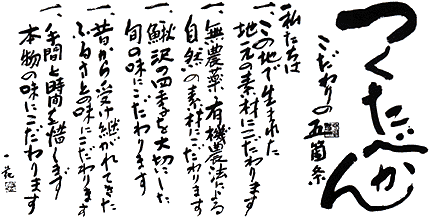 つくたべかん
こだわりの五箇条
私たちは
一、この地で生まれた
地元の素材にこだわります
一、無農薬、有機農法による
自然の素材にこだわります
一、鰍沢の四季を大切にした
旬の味にこだわります
一、昔から受け継がれてきた
ふるさとの味にこだわります
一、手間と時間を惜します
本物の味にこだわります